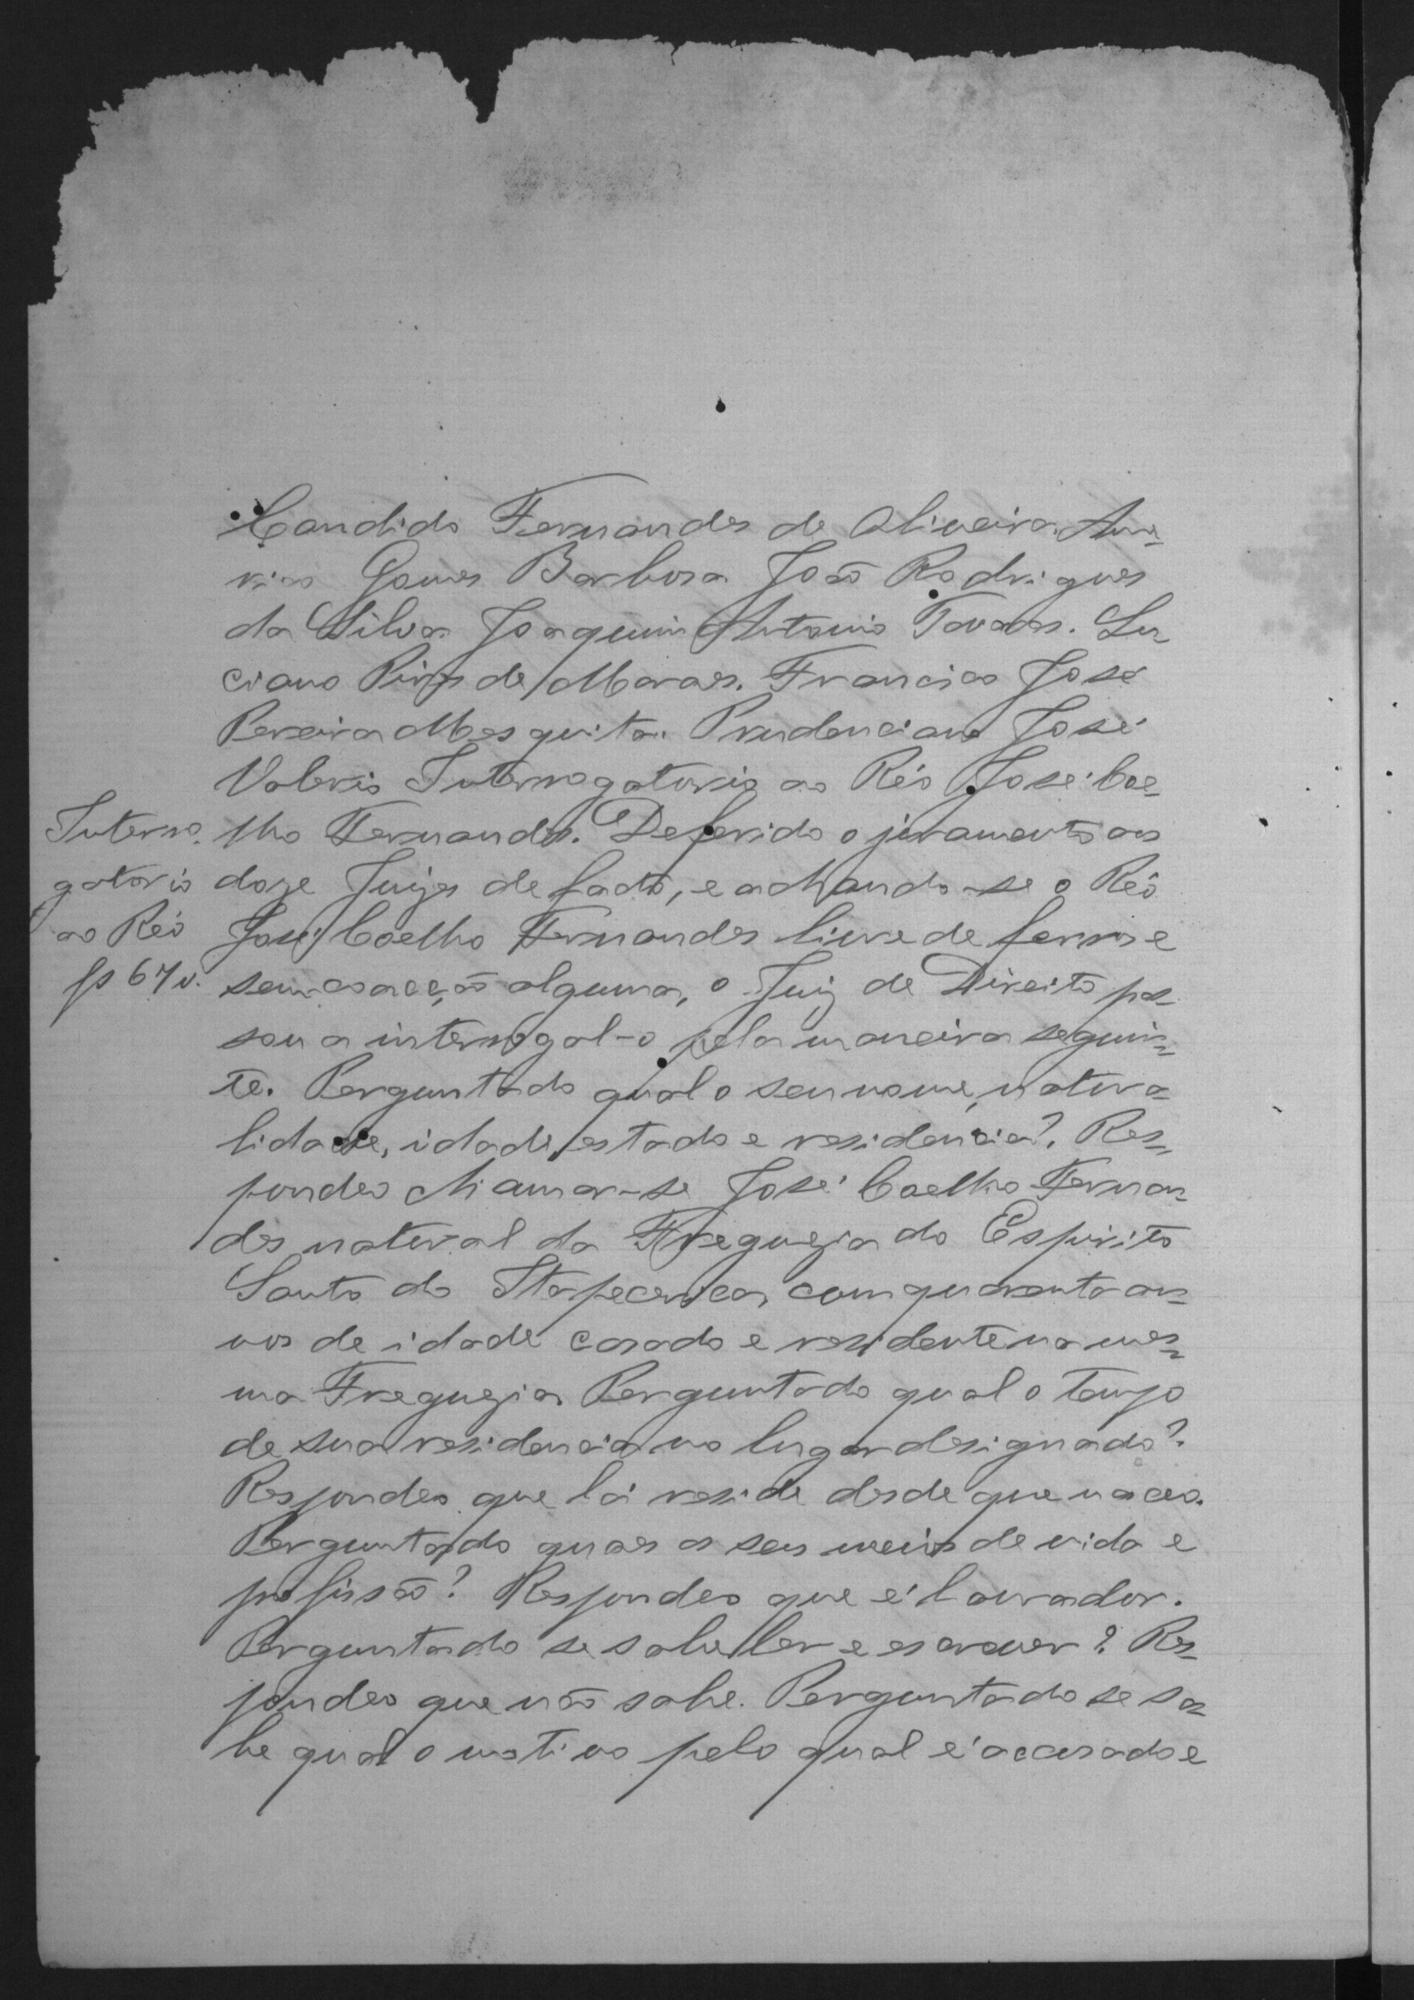 Candido Fernandes de Oliveira. Ame-
rico Gomes Barbosa João Rodrigues
da Silva Joaquim Antonio Tavares. Lu-
ciano Pires de Moraes. Francisco José
Pereira Mesquita. Prudenciano José
Valerio Interrogatorio ao Réo José Coe-
lho Fernandes. Deferido o juramento aos
doze Juizes de facto, e achando-se o Réo
José Coelho Fernandes livre de ferros e
sem coacção alguma, o Juiz de Direito pas-
sou a interrogal-o pela maneira seguin-
te. Perguntado qual o seu nome, natura-
lidade, idade, estado e residencia? Res-
pondeo chamar-se José Coelho Fernan-
des natural da Freguezia do Espirito
Santo da Itapecerica, com quarenta an-
nos de idade casado e residente na mes-
ma Freguezia Perguntado qual o tempo
de sua residencia no lugar designado?
Respondeo que lá reside desde que nasceo.
Perguntado quaes os seus meios de vida e
profissão? Respondeo que é lavrador.
Perguntado se sabe ler e escrever? Res-
pondeo que não sabe. Perguntado se sa-
be qual o motivo pelo qual é accusado e
Interro-
gatorio
ao Réo
fs 67 v.